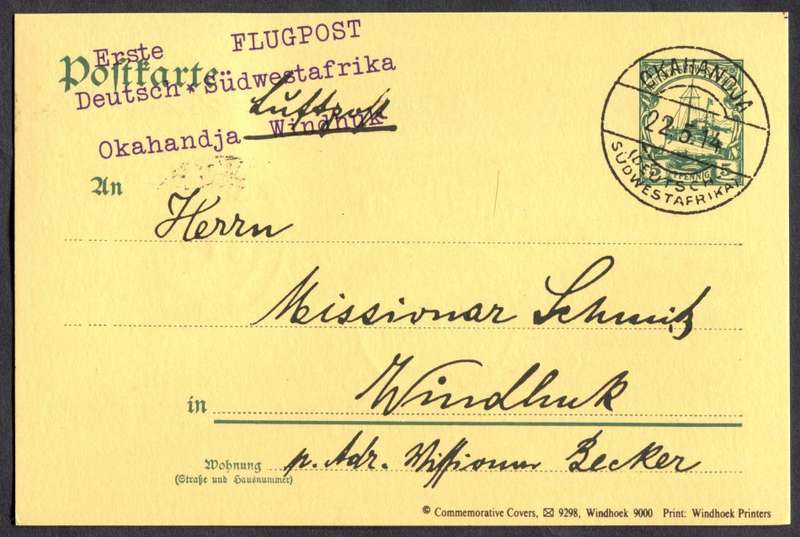 Erste FLUGPOST
Postkarte
Deutsch * Südwestafrika
Luftpost
Okahandja Windhuk
OKAHANDJA
22.5.14
(DEUTSCH-
SÜDWESTAFRIKA)
5 PFENNIG 5
An
Herrn
Missionar Schmitz
in Windhuk
Wohnung
(Straße und Hausnummer)
p. Adr. Missionar Becker
© Commemorative Covers, ✉ 9298, Windhoek 9000 Print: Windhoek Printers